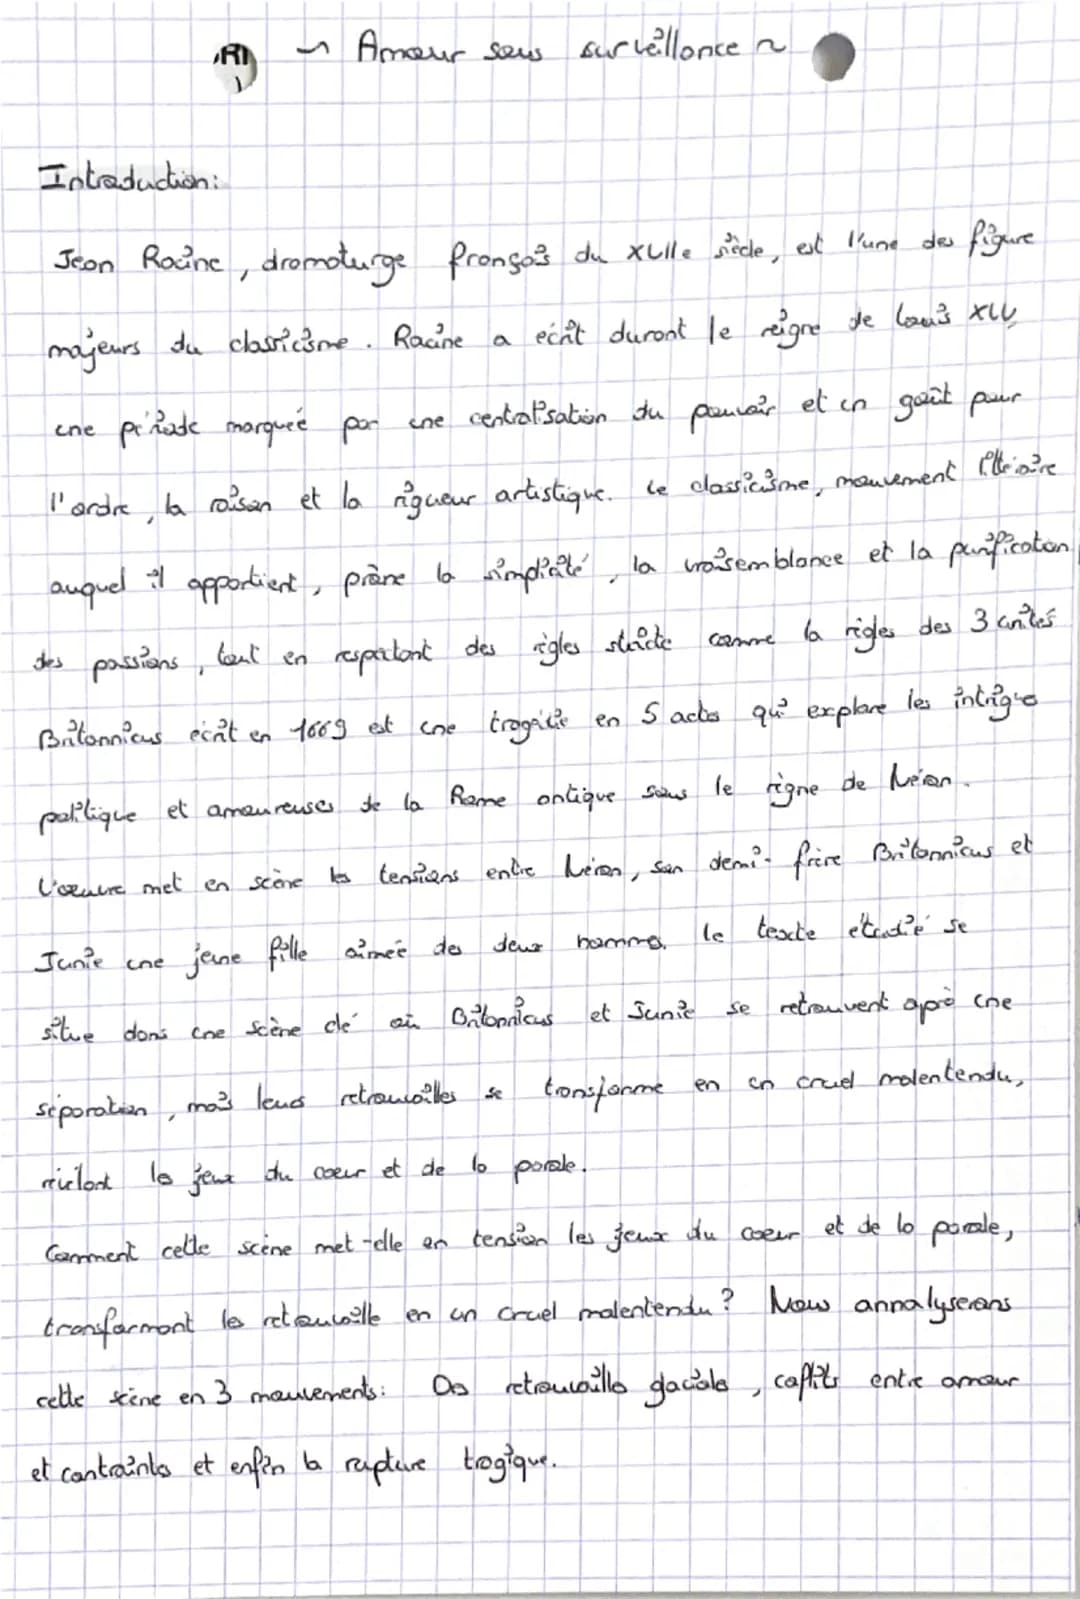 RI
~ Amour sous surveillance ~
Introduction:
Jean Racine, dramaturge français du XVIIe siècle, est l'une des figure
majeurs du classicisme. Racine a écrit durant le reigne de Louis XIV,
une période marquée par une centralisation du pouvoir et un goût pour
l'ordre, la raison et la rigueur artistique. Le classicisme, mouvement littéraire
auquel il appartient, prône la simplicité, la vraisemblance et la purification
des passions, tout en respectant des règles stricte comme la règles des 3 unités
Britannicus écrit en 1669 est une tragédie en 5 actes qui explore les intrigue
politique et amoureuses de la Rome antique sous le règne de Néron.
L'œuvre met en scène les tensions entre Néron, son demi-frère Britannicus et
Junie une jeune fille aimée des deux hommes. Le texte étudié se
situe dans une scène clé où Britannicus et Junie se retrouvent après une
séparation, mais leurs retrouvailles se transforme en un cruel malentendu,
révélant les jeux du coeur et de la parole.
Comment cette scène met-elle en tension les jeux du coeur et de la parole,
transformant les retrouvaille en un cruel malentendu? Nous annalyserons
cette scène en 3 mouvements: Des retrouvailles glaciales, coflits entre amour
et contraintes et enfin la rupture tragique.